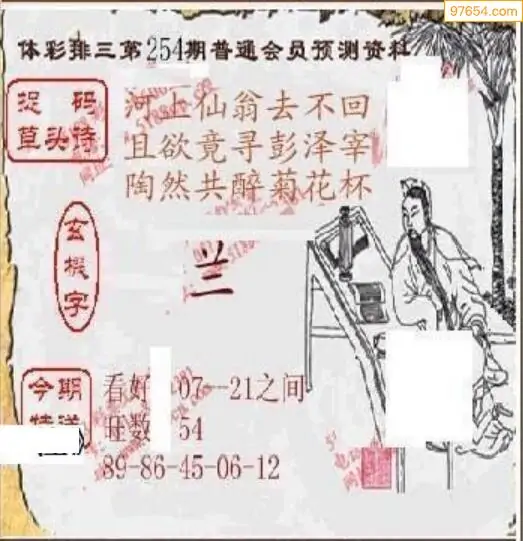 97654.com
体彩排三第254期普通会员预测资料
捉码
草头诗
河上仙翁去不回
且欲竟寻彭泽宰
陶然共醉菊花杯
玄機字
兰
今期
特送
看好 07--21之间
旺数 54
89-86-45-06-12